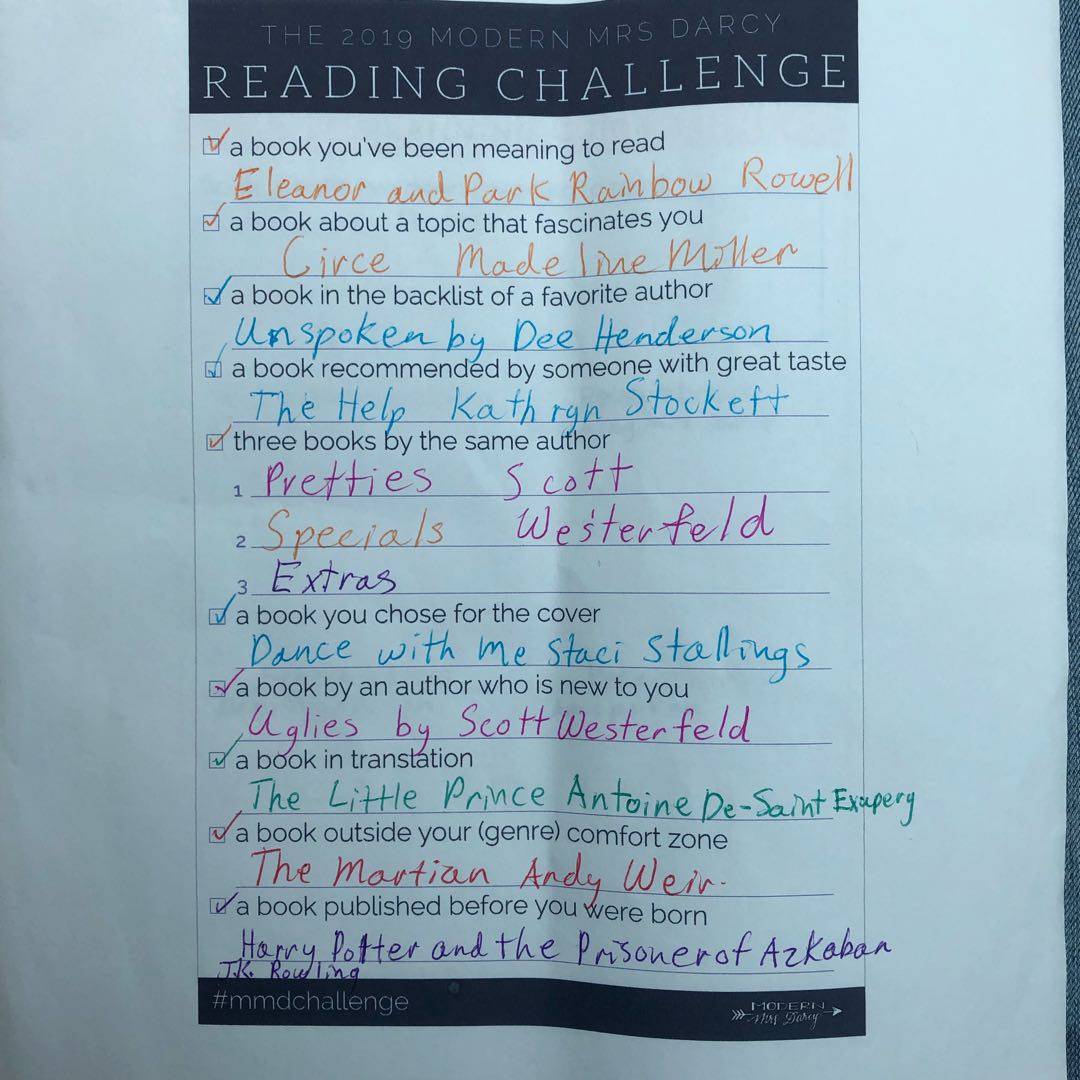 THE 2019 MODERN MRS DARCY
READING CHALLENGE
a book you've been meaning to read
Eleanor and Park Rainbow Rowell
a book about a topic that fascinates you
Circe Madeline Miller
a book in the backlist of a favorite author
Unspoken by Dee Henderson
a book recommended by someone with great taste
The Help Kathryn Stockett
three books by the same author
1 Pretties Scott
2 Specials Westerfeld
3 Extras
a book you chose for the cover
Dance with me Staci Stallings
a book by an author who is new to you
Uglies by Scott Westerfeld
a book in translation
The Little Prince Antoine De-Saint Exupery
a book outside your (genre) comfort zone
The Martian Andy Weir.
a book published before you were born
Harry Potter and the Prisoner of Azkaban
J.K. Rowling
#mmdchallenge
MODERN
Mrs Darcy